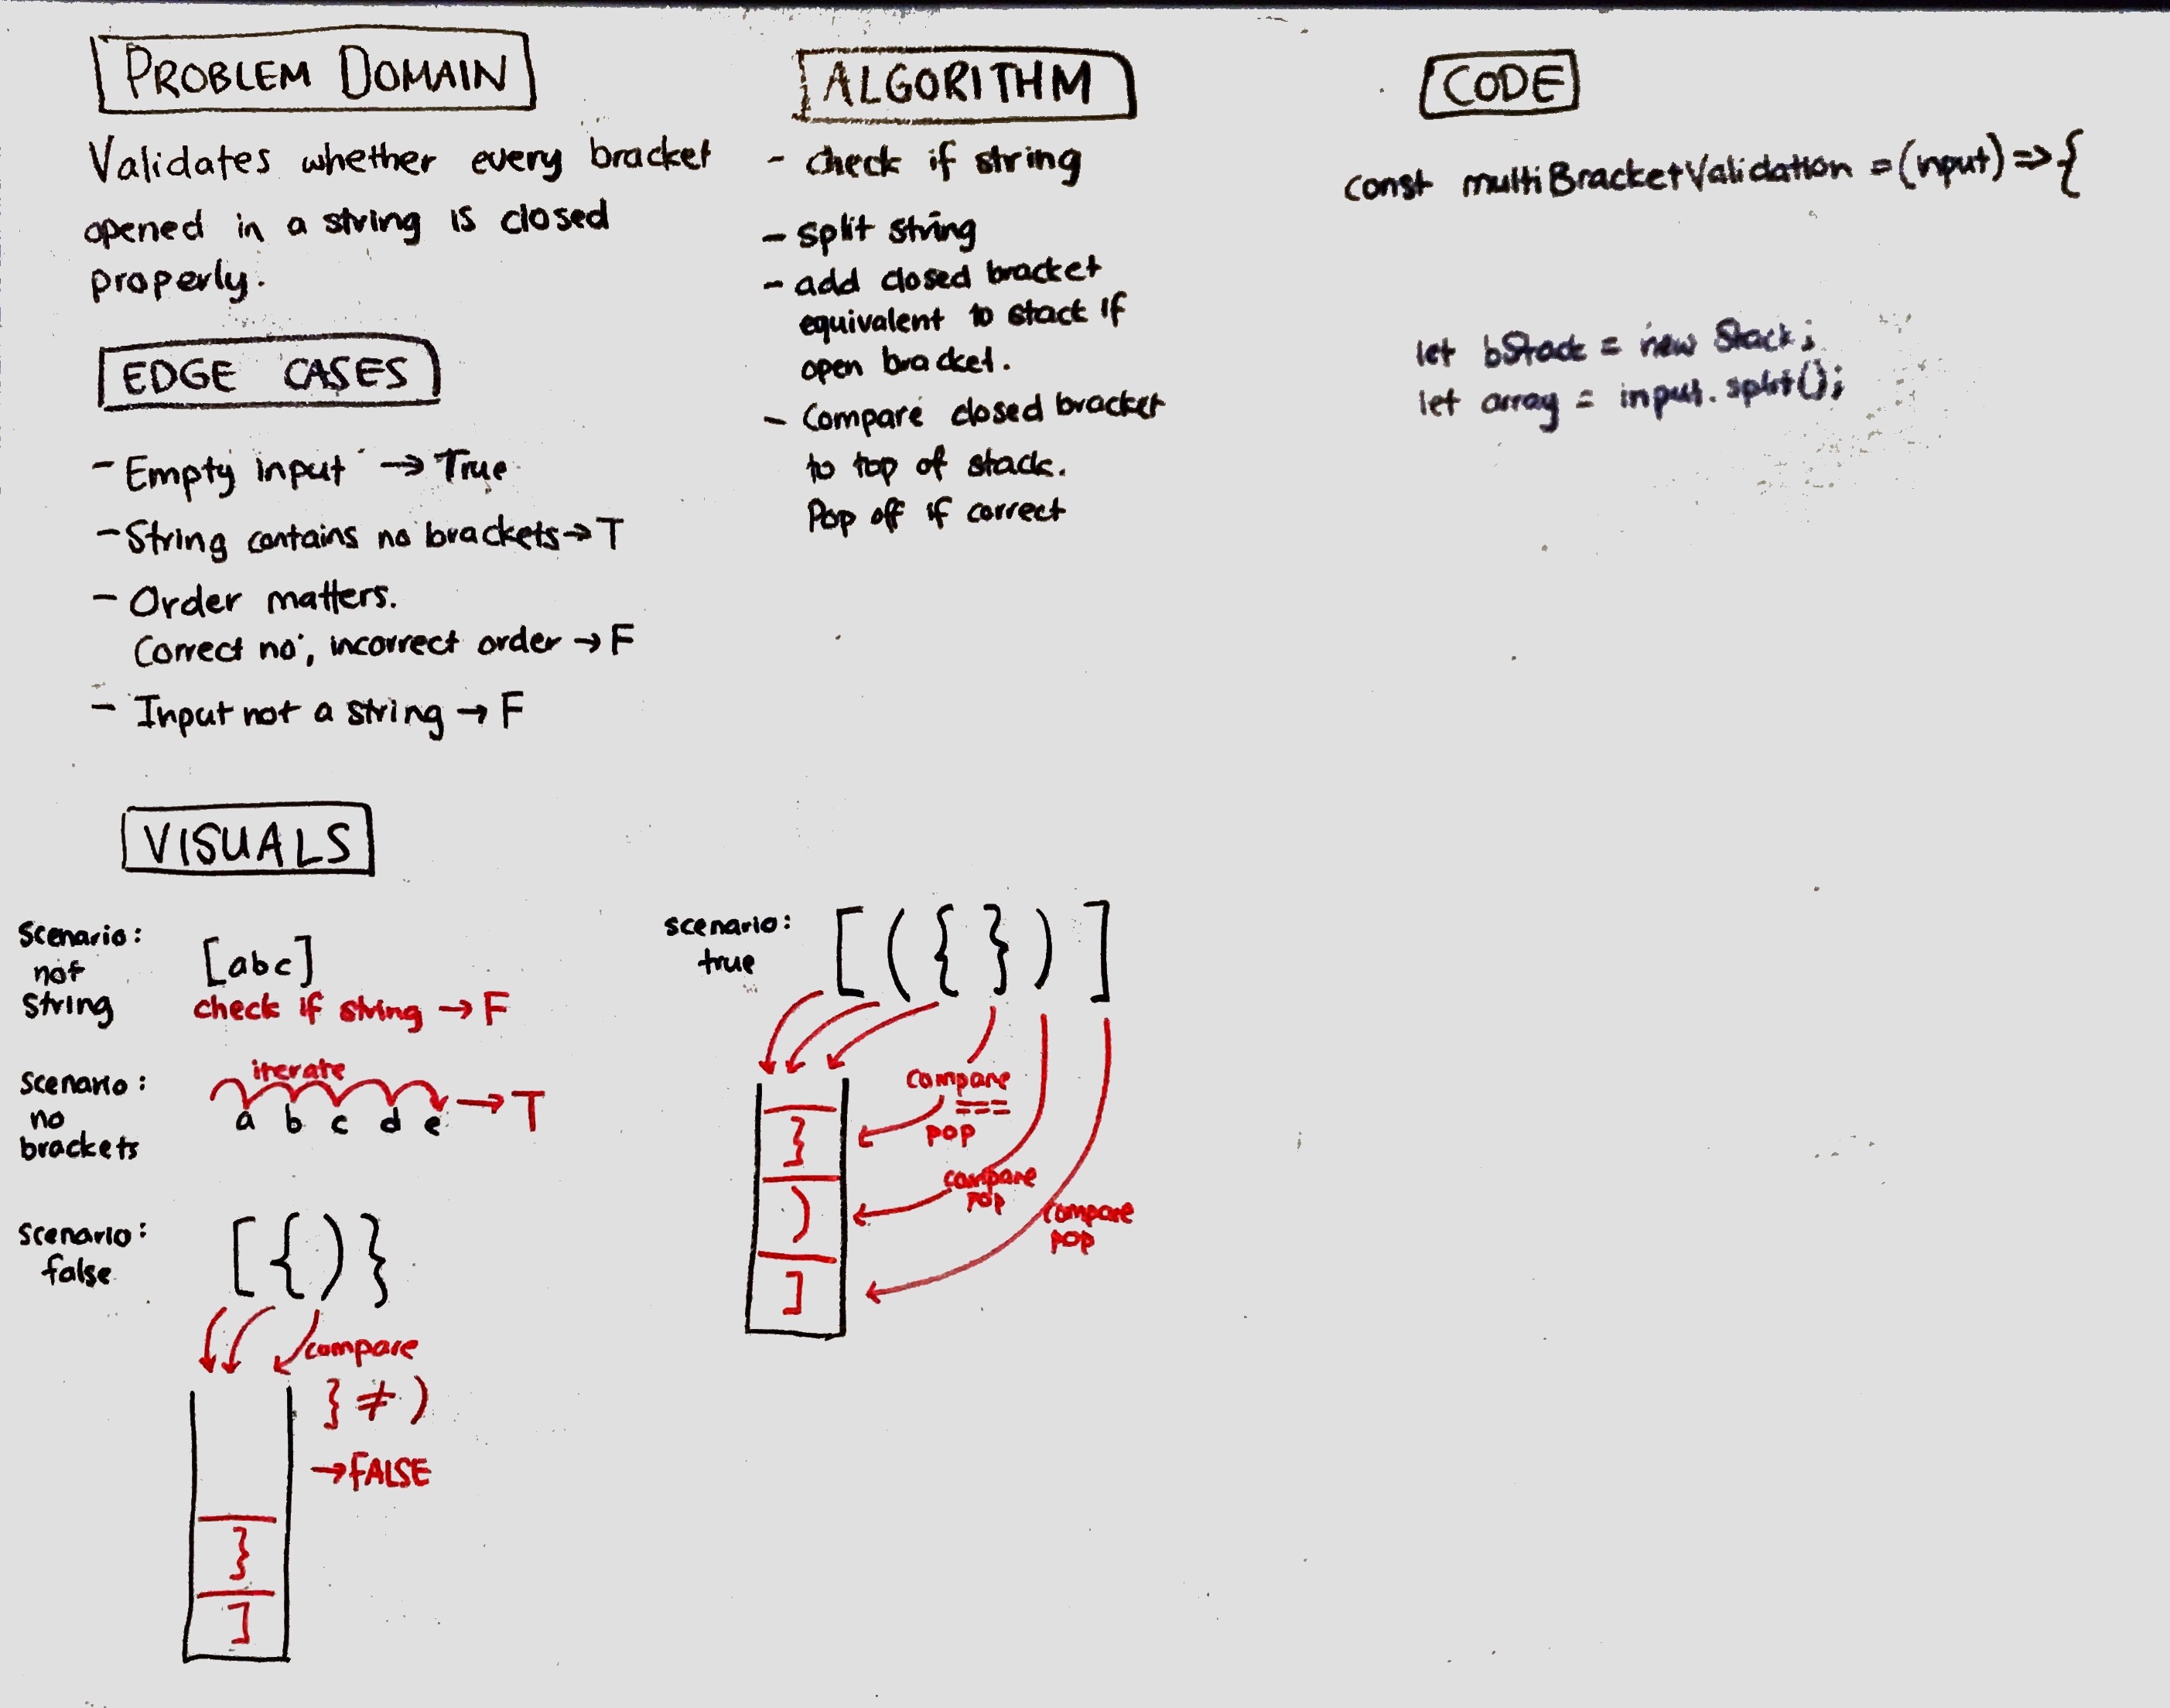 PROBLEM DOMAIN
Validates whether every bracket
opened in a string is closed
properly.
EDGE CASES
- Empty input → True
- String contains no brackets → T
- Order matters.
Correct no., incorrect order → F
- Input not a string → F
ALGORITHM
- check if string
- split string
- add closed bracket
equivalent to stack if
open bracket.
- Compare closed bracket
to top of stack.
Pop off if correct
CODE
const multiBracketValidation = (input) => {
let bStack = new Stack;
let array = input.split();
VISUALS
scenario:
not
string
[abc]
check if string → F
scenario:
no
brackets
iterate
a b c d e → T
scenario:
false
[{)}
compare
} ≠ )
→ FALSE
}
]
scenario:
true
[({})]
compare
===
pop
compare
pop
compare
pop
}
)
]